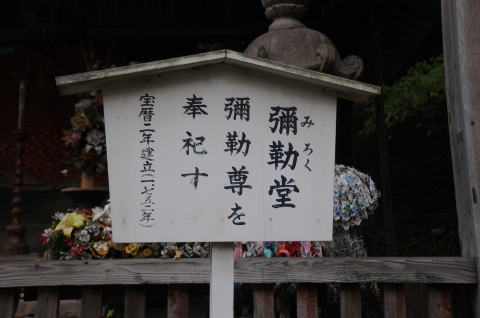 彌勒堂
みろく
彌勒尊を
奉祀す
宝暦二年建立(一七五二年)